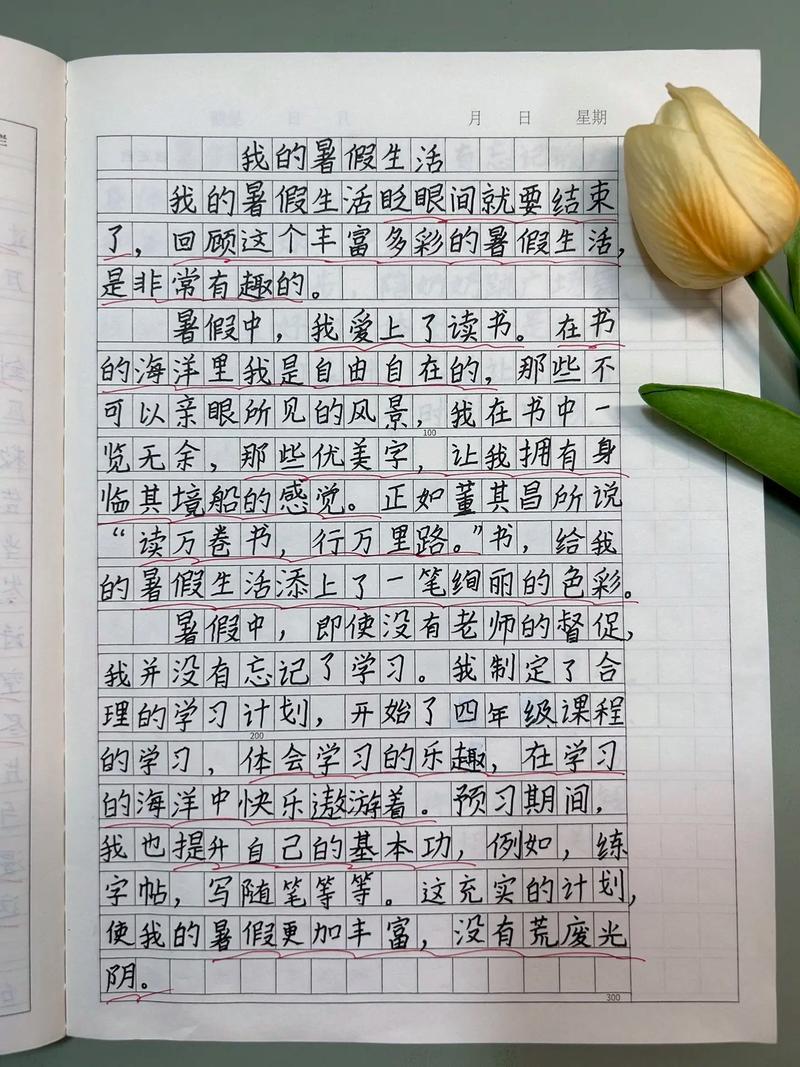 月 日 星期
我的暑假生活
我的暑假生活眨眼间就要结束
了，回顾这个丰富多彩的暑假生活，
是非常有趣的。
暑假中，我爱上了读书。在书
的海洋里我是自由自在的，那些不
可以亲眼所见的风景，我在书中一
100
览无余，那些优美字，让我拥有身
临其境船的感觉。正如董其昌所说
“读万卷书，行万里路。”书，给我
的暑假生活添上了一笔绚丽的色彩。
暑假中，即使没有老师的督促，
我并没有忘记了学习。我制定了合
理的学习计划，开始了四年级课程
200
的学习，体会学习的乐趣，在学习
的海洋中快乐遨游着。预习期间，
我也提升自己的基本功，例如，练
字帖，写随笔等等。这充实的计划，
使我的暑假更加丰富，没有荒废光
阴。
300